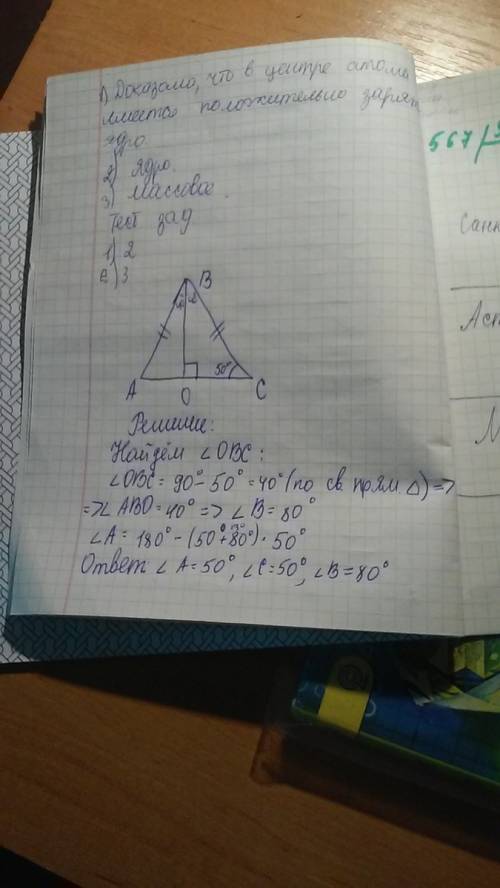 1) Доказало, что в центре атома
имеется положительно заряж
ядро.
2) Ядро.
3) Массовое.
Тест зад
1) 2
2) 3
B
50°
A
O
C
Решение:
Найдём ∠OBC:
∠OBC = 90° - 50° = 40° (по св. прям. △) =>
=> ∠ABO = 40° => ∠B = 80°
∠A = 180° - (50° + 80°) = 50°
Ответ ∠A = 50°, ∠C = 50°, ∠B = 80°
567
Санк
Аст
М